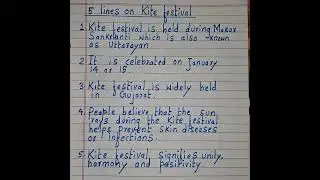 5 lines on Kite festival
1. Kite festival is held during Makar
Sankranti which is also known
as Uttarayan.
2. It is celebrated on January
14 or 15.
3. Kite festival is widely held
in Gujarat.
4. People believe that the sun
rays during the Kite festival
helps prevent skin diseases
or infections.
5. Kite festival signifies unity,
harmony and positivity.